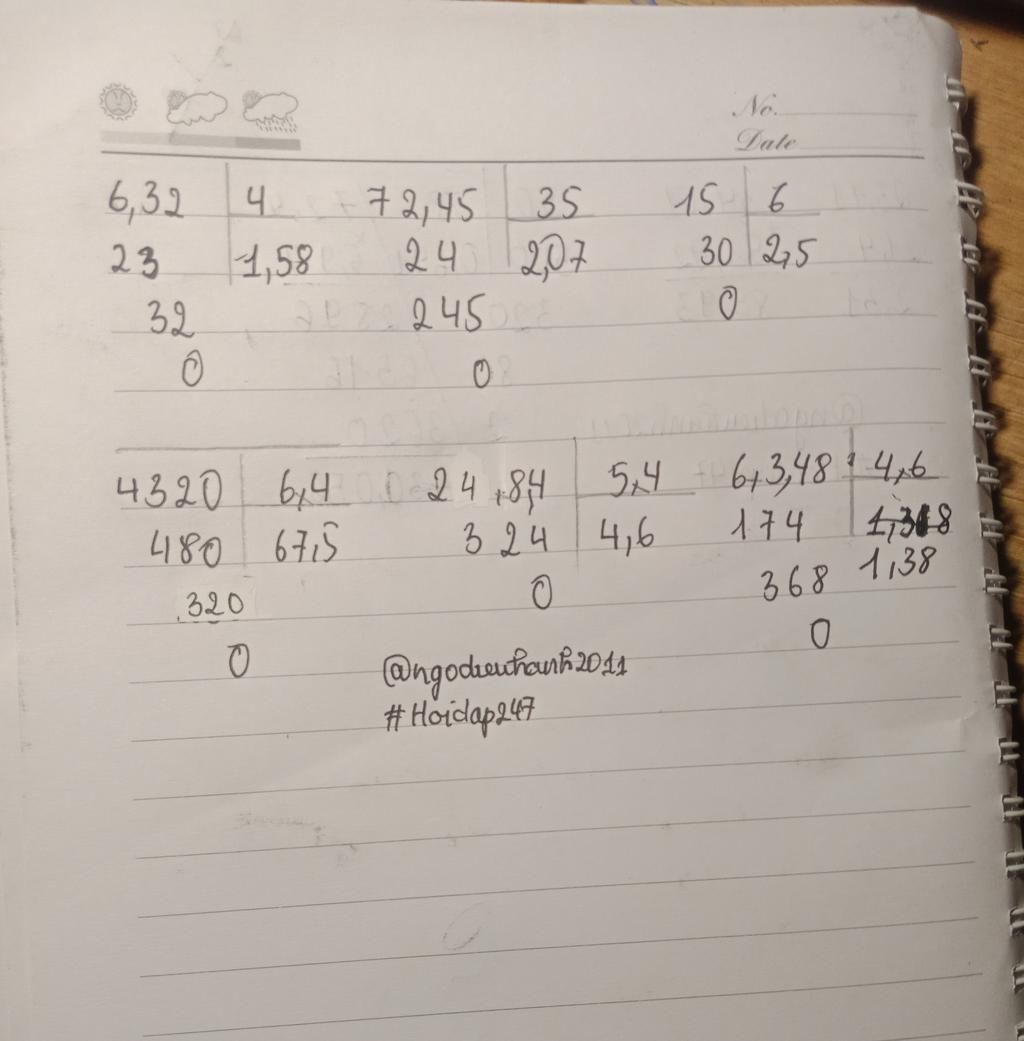 No.
Date
6,32 4 72,45 35 15 6
23 1,58 24 2,07 30 2,5
32 245 0
0 0
4320 6,4 24,8,4 5,4 6,3,48 4,6
480 67,5 324 4,6 174
320 0 368 1,38
0 0
@ngodieuthanh2011
#Hoidap247